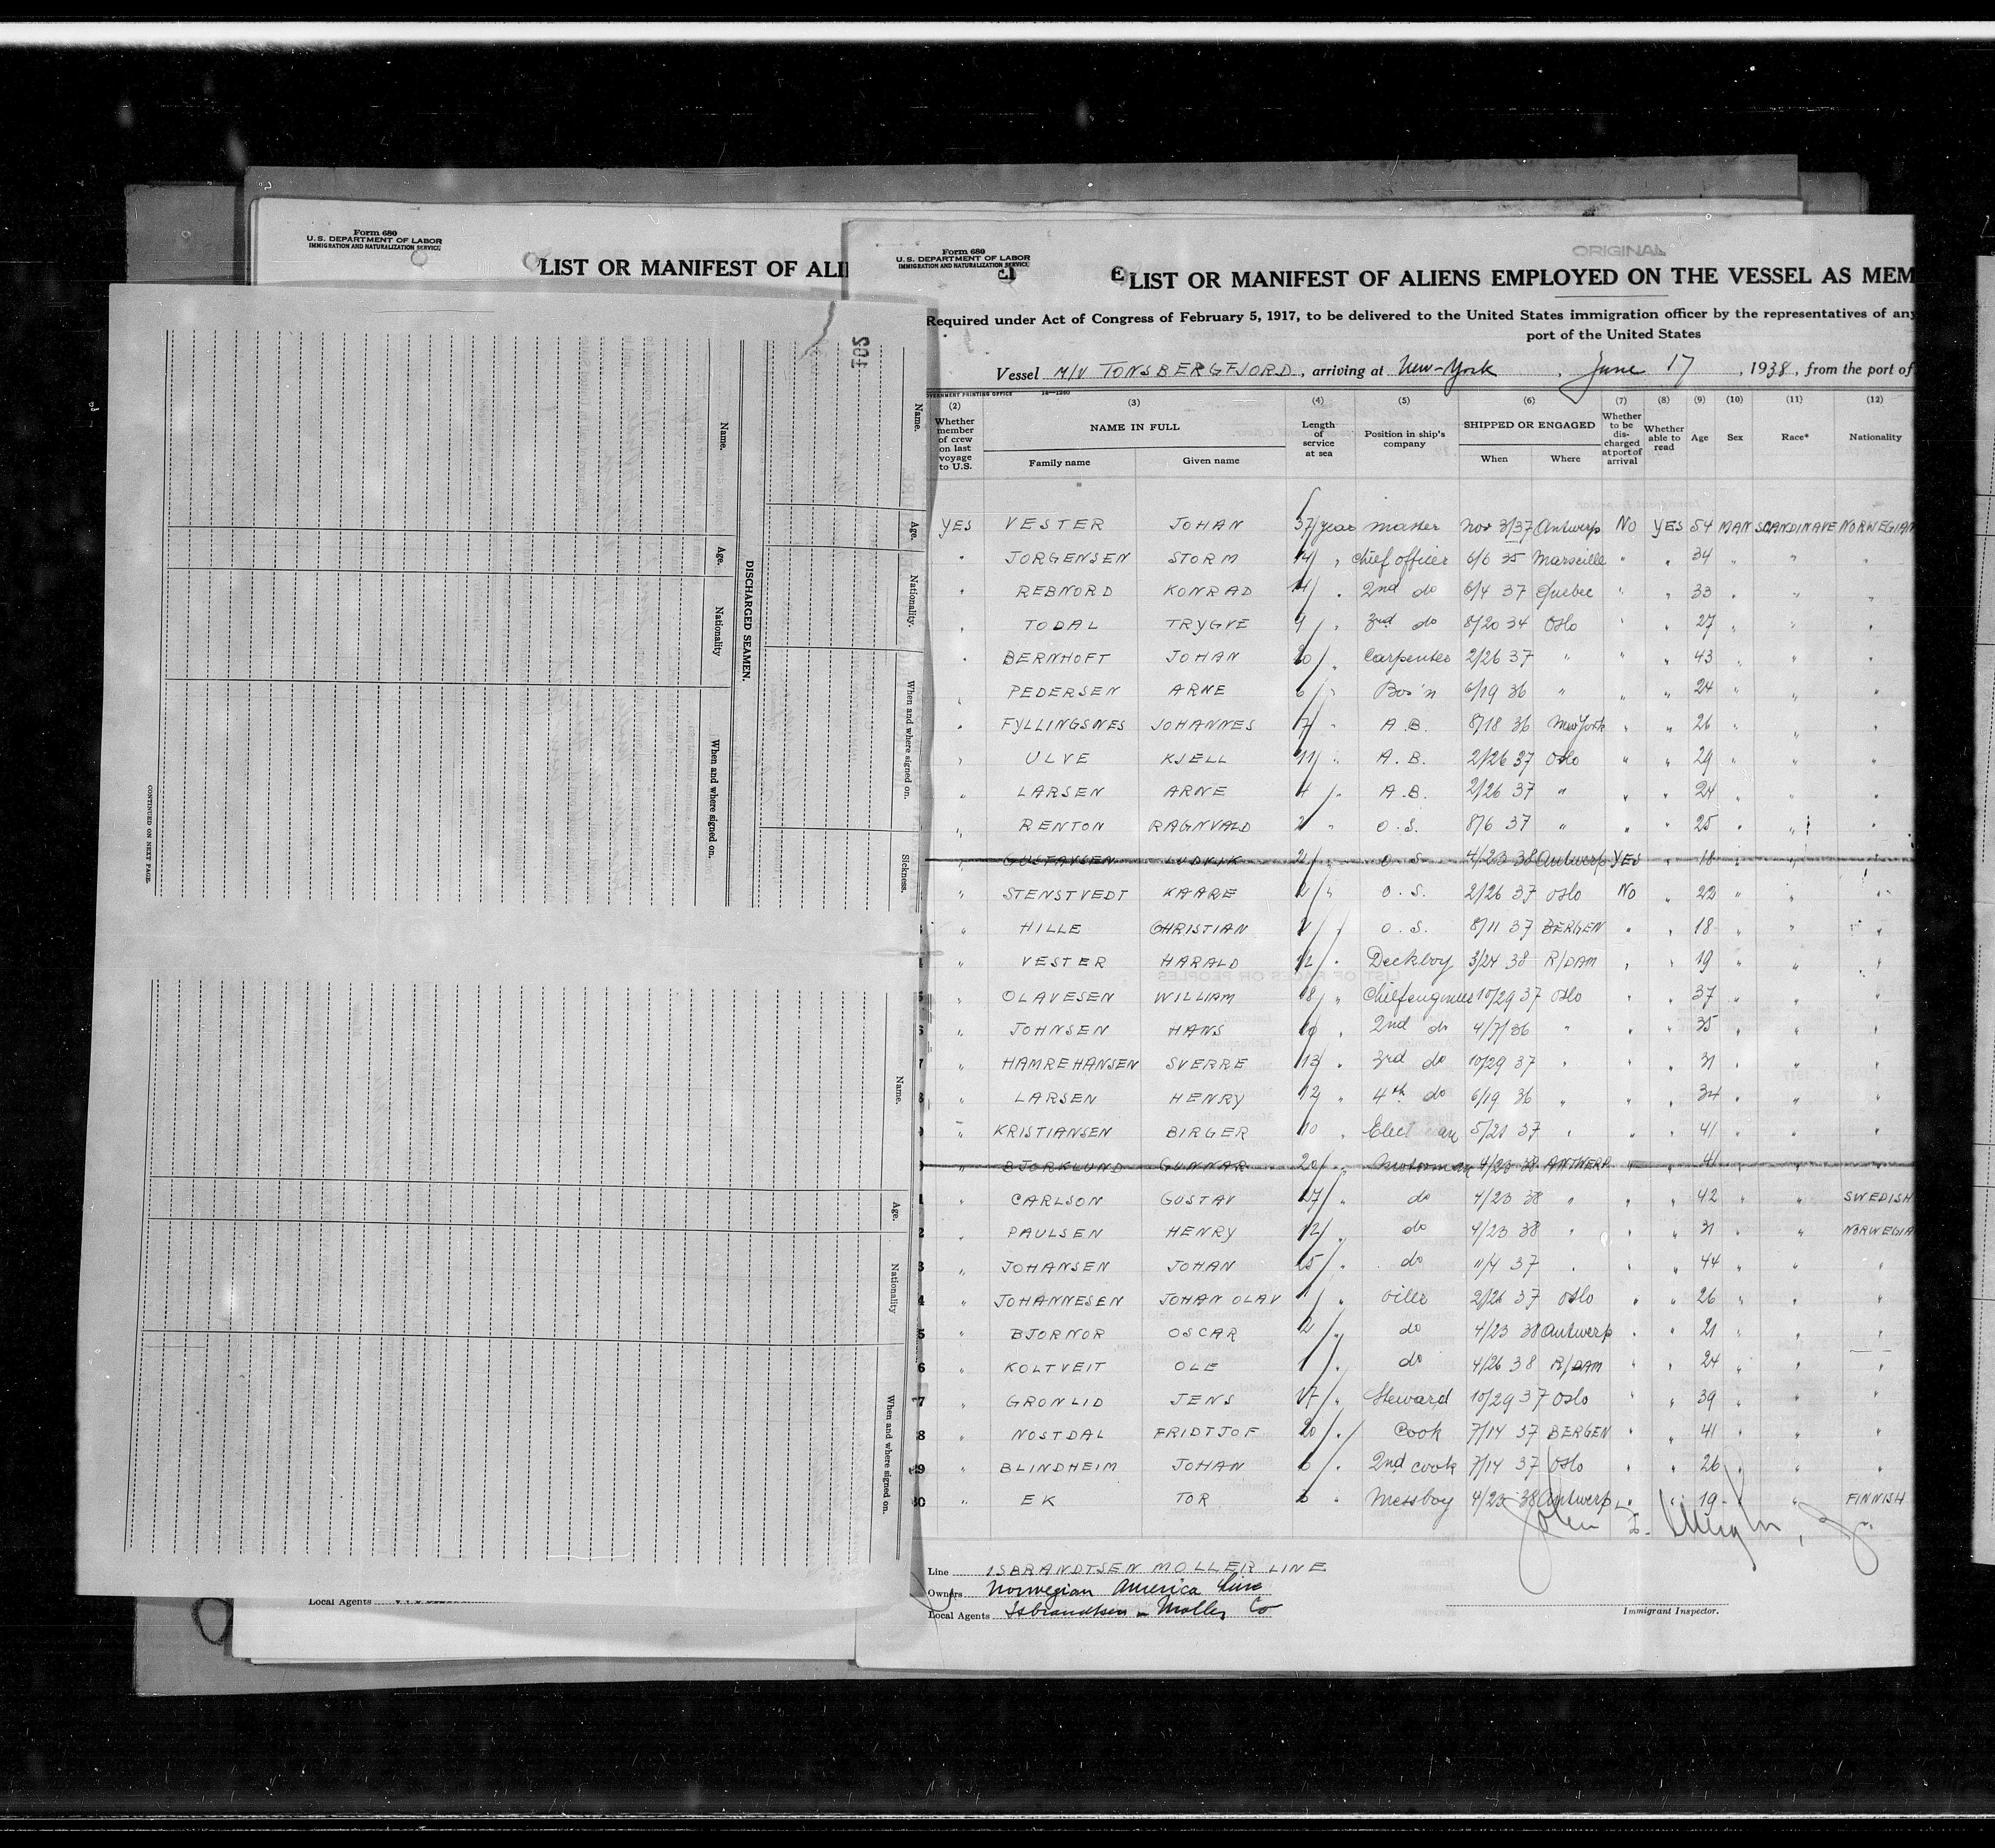 Form 680
U.S. DEPARTMENT OF LABOR
IMMIGRATION AND NATURALIZATION SERVICE
LIST OR MANIFEST OF ALI
Name.
Age.
Nationality.
When and where signed on.
Sickness.
DISCHARGED SEAMEN.
Name.
Age.
Nationality
When and where signed on.
CONTINUED ON NEXT PAGE.
Name.
Age.
Nationality
When and where signed on.
Local Agents
Form 680
U.S. DEPARTMENT OF LABOR
IMMIGRATION AND NATURALIZATION SERVICE
ORIGINAL
LIST OR MANIFEST OF ALIENS EMPLOYED ON THE VESSEL AS MEM
Required under Act of Congress of February 5, 1917, to be delivered to the United States immigration officer by the representatives of any
port of the United States
Vessel M/V TONSBERGFJORD, arriving at New-York, June 17, 1938, from the port of
(2) (3) (4) (5) (6) (7) (8) (9) (10) (11) (12)
Whether member of crew on last voyage to U.S. NAME IN FULL Family name Given name Length of service at sea Position in ship's company SHIPPED OR ENGAGED When Where Whether to be discharged at port of arrival Whether able to read Age Sex Race* Nationality
YES VESTER JOHAN 37/year master Nov 3/37 Antwerp No YES 54 MAN SCANDINAVE NORWEGIAN
" JORGENSEN STORM 14/ " chief officer 6/6 35 Marseille " " 34 " " "
" REBNORD KONRAD " 2nd do 6/4 37 Quebec " " 33 " " "
" TODAL TRYGVE " 3rd do 8/20 34 Oslo " " 27 " " "
" BERNHOFT JOHAN 20/ " Carpenter 2/26 37 " " " 43 " " "
" PEDERSEN ARNE 6/ " Bos'n 6/19 36 " " " 24 " " "
" FYLLINGSNES JOHANNES 7/ " A.B. 8/18 36 New York " " 26 " " "
" ULVE KJELL 11/ " A.B. 2/26 37 Oslo " " 29 " " "
" LARSEN ARNE 4/ " A.B. 2/26 37 " " " 24 " " "
" RENTON RAGNVALD 2/ " O.S. 8/6 37 " " " 25 " " "
" GUSTAVSEN LUDVIK 2/ " O.S. 4/23 38 Antwerp YES " 18 " " "
" STENSTVEDT KAARE 2/ " O.S. 2/26 37 Oslo No " 22 " " "
" HILLE CHRISTIAN " O.S. 8/11 37 BERGEN " " 18 " " "
" VESTER HARALD 1/2 " Deckboy 3/24 38 R/DAM " " 19 " " "
" OLAVESEN WILLIAM 18/ " Chiefengineer 10/29 37 Oslo " " 37 " " "
" JOHNSEN HANS 10/ " 2nd do 4/7/36 " " " 35 " " "
" HAMREHANSEN SVERRE 13/ " 3rd do 10/29 37 " " " 31 " " "
" LARSEN HENRY 12/ " 4th do 6/19 36 " " " 34 " " "
" KRISTIANSEN BIRGER 10 " 5/21 37 " " " 41 " " "
" BJORKLUND GUNNAR 20/ " Motorman 4/23 38 ANTWERP " " 41 " " "
" CARLSON GUSTAV 27/ " do 4/23 38 " " " 42 " " SWEDISH
" PAULSEN HENRY 12/ " do 4/23 38 " " " 31 " " NORWEGIA
" JOHANSEN JOHAN 25/ " do 11/4 37 " " " 44 " " "
" JOHANNESEN JOHAN OLAV 1/ " oiler 2/26 37 Oslo " " 26 " " "
" BJORNOR OSCAR 2/ " do 4/23 38 Antwerp " " 21 " " "
" KOLTVEIT OLE 1/ " do 4/26 38 R/DAM " " 24 " " "
" GRONLID JENS 17/ " Steward 10/29 37 Oslo " " 39 " " "
" NOSTDAL FRIDTJOF 20/ " Cook 7/14 37 BERGEN " " 41 " " "
" BLINDHEIM JOHAN 6/ " 2nd cook 7/14 37 Oslo " " 26 " " "
" EK TOR " Messboy 4/23 38 Antwerp " " 19 " " FINNISH
Line ISBRANDTSEN MOLLER LINE
Owners Norwegian America Line
Local Agents Isbrandtsen Moller Co
Immigrant Inspector.